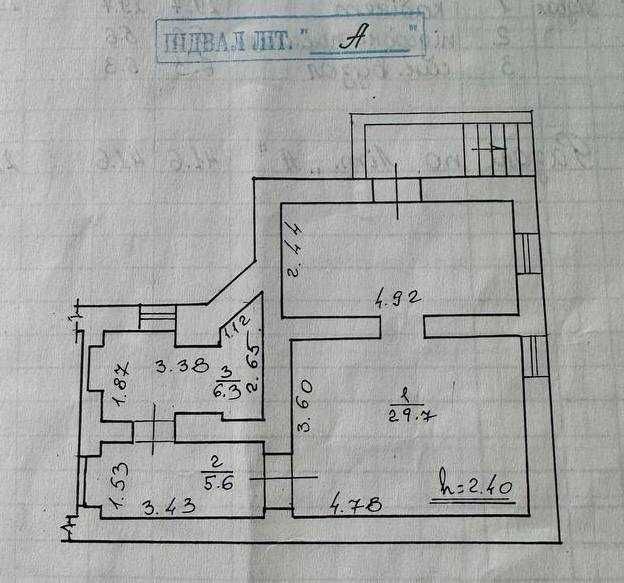 ПІДВАЛ ЛІТ. "А"
2.44
4.92
1.12
3.38
3
6.3
2.65
1.87
3.60
1
29.7
2
5.6
1.53
3.43
4.78
h=2.40